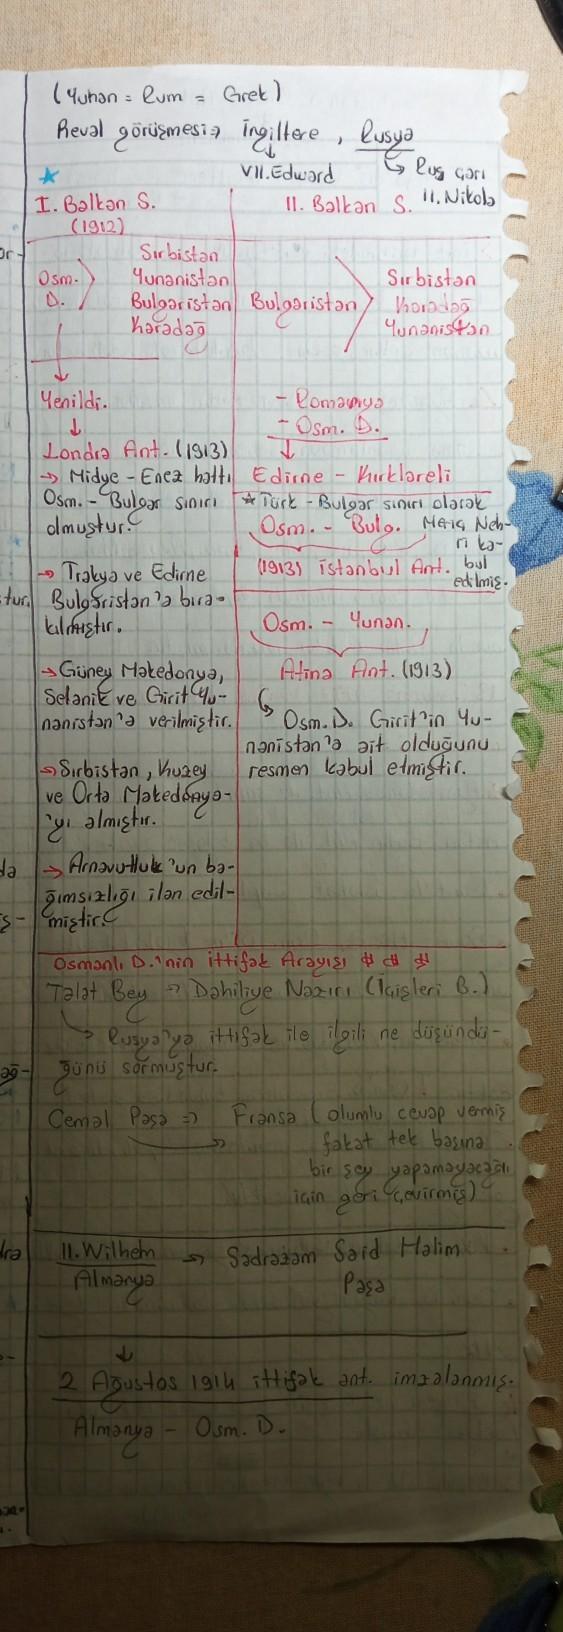 (Yunan = Rum = Grek)
Reval görüşmesi⇒ İngiltere , Rusya
↓
VII. Edward
↳ Rus Çarı
II. Nikola
★
I. Balkan S.
(1912)
Osm.
D.
Sırbistan
Yunanistan
Bulgaristan
Karadağ
↓
Yenildi.
↓
Londra Ant. (1913)
→ Midye - Enez hattı
Osm. - Bulgar sınırı
olmuştur.
→ Trakya ve Edirne
Bulgaristan'a bıra-
kılmıştır.
→ Güney Makedonya,
Selanik ve Girit Yu-
nanistan'a verilmiştir.
→ Sırbistan, Kuzey
ve Orta Makedonya-
'yı almıştır.
→ Arnavutluk'un ba-
ğımsızlığı ilan edil-
miştir.
II. Balkan S.
Bulgaristan
Sırbistan
Karadağ
Yunanistan
- Romanya
- Osm. D.
↓
Edirne - Kırklareli
★ Türk - Bulgar sınırı olarak
Osm. - Bulg. Meriç Neh-
ri ka-
(1913) İstanbul Ant. bul
edilmiş.
Osm. - Yunan.
Atina Ant. (1913)
↳ Osm. D. Girit'in Yu-
nanistan'a ait olduğunu
resmen kabul etmiştir.
Osmanlı D.'nin İttifak Arayışı
Talat Bey → Dahiliye Nazırı (İçişleri B.)
↳ Rusya'ya ittifak ile ilgili ne düşündü-
ğünü sormuştur.
Cemal Paşa ⇒ Fransa (olumlu cevap vermiş
fakat tek başına
bir şey yapamayacağı
için geri çevirmiş)
II. Wilhem → Sadrazam Said Halim
Almanya Paşa
↓
2 Ağustos 1914 ittifak ant. imzalanmış.
Almanya - Osm. D.